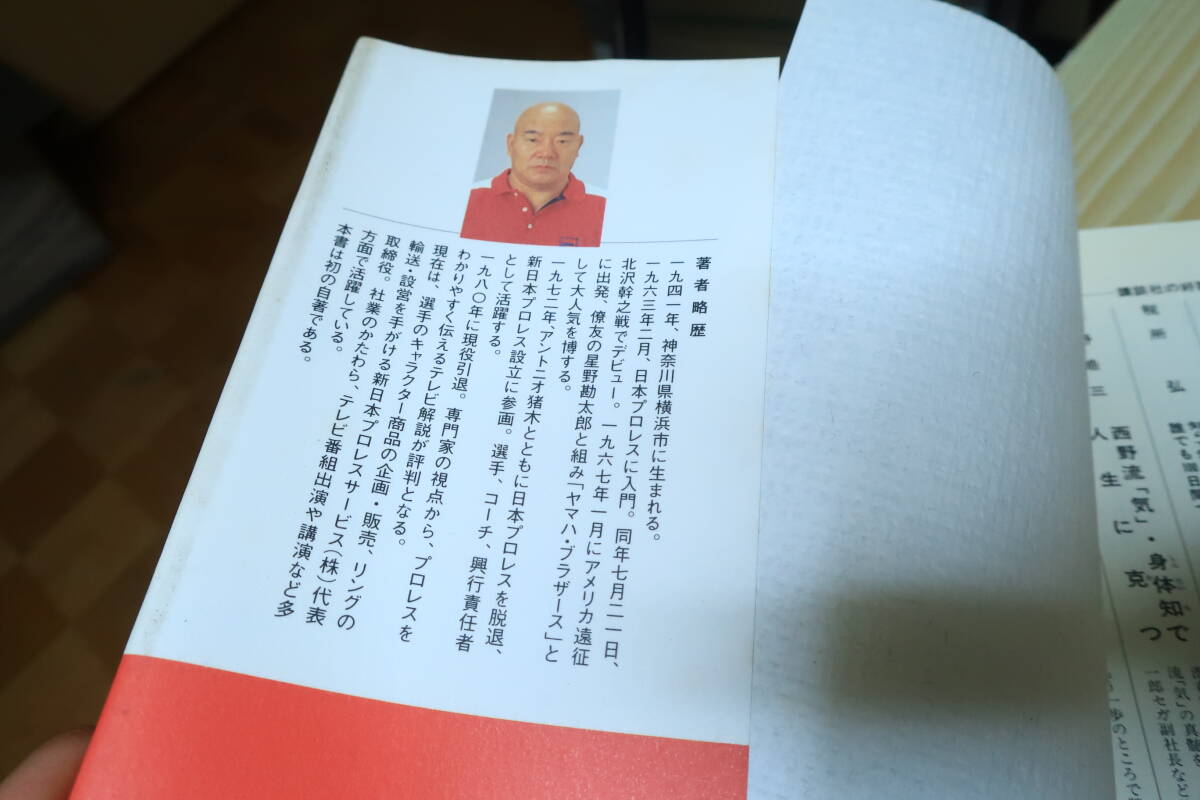 著者略歴
一九四一年、神奈川県横浜市に生まれる。
一九六三年二月、日本プロレスに入門。同年七月二一日、
北沢幹之戦でデビュー。一九六七年一月にアメリカ遠征
に出発、僚友の星野勘太郎と組み「ヤマハ・ブラザース」と
して大人気を博する。
一九七二年、アントニオ猪木とともに日本プロレスを脱退、
新日本プロレス設立に参画。選手、コーチ、興行責任者
として活躍する。
一九八〇年に現役引退。専門家の視点から、プロレスを
わかりやすく伝えるテレビ解説が評判となる。
現在は、選手のキャラクター商品の企画・販売、リングの
輸送・設営を手がける新日本プロレスサービス(株)代表
取締役。社業のかたわら、テレビ番組出演や講演など多
方面で活躍している。
本書は初の自著である。
講談社の
弘
誰でも
西野流「気」・身体知で
人生に克つ
三
流「気」の真髄を
一郎セガ副社長など
一歩のところで